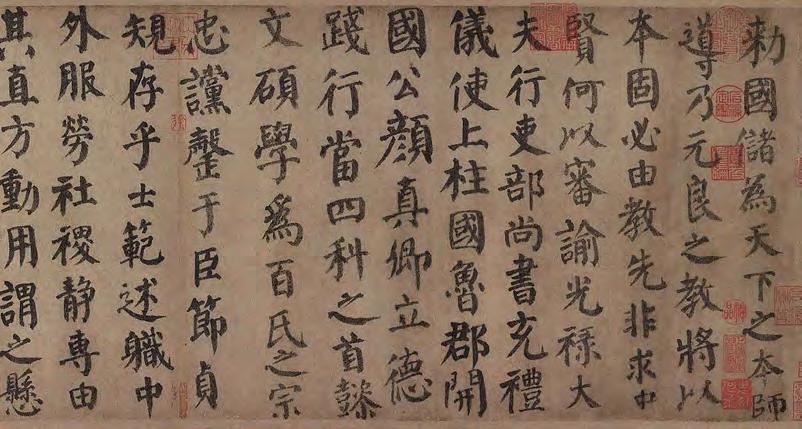 勅國儲為天下之本師
導乃元良之教將以
本固必由教先非求中
賢何以審諭光祿大
夫行吏部尚書充禮
儀使上柱國魯郡開
國公顏真卿立德
踐行當四科之首懿
文碩學爲百氏之宗
忠讜罄于臣節貞
規存乎士範述職中
外服勞社稷静專由
其直方動用謂之懸